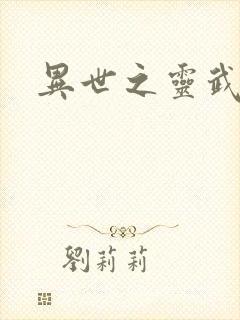 異世之靈武
劉莉莉